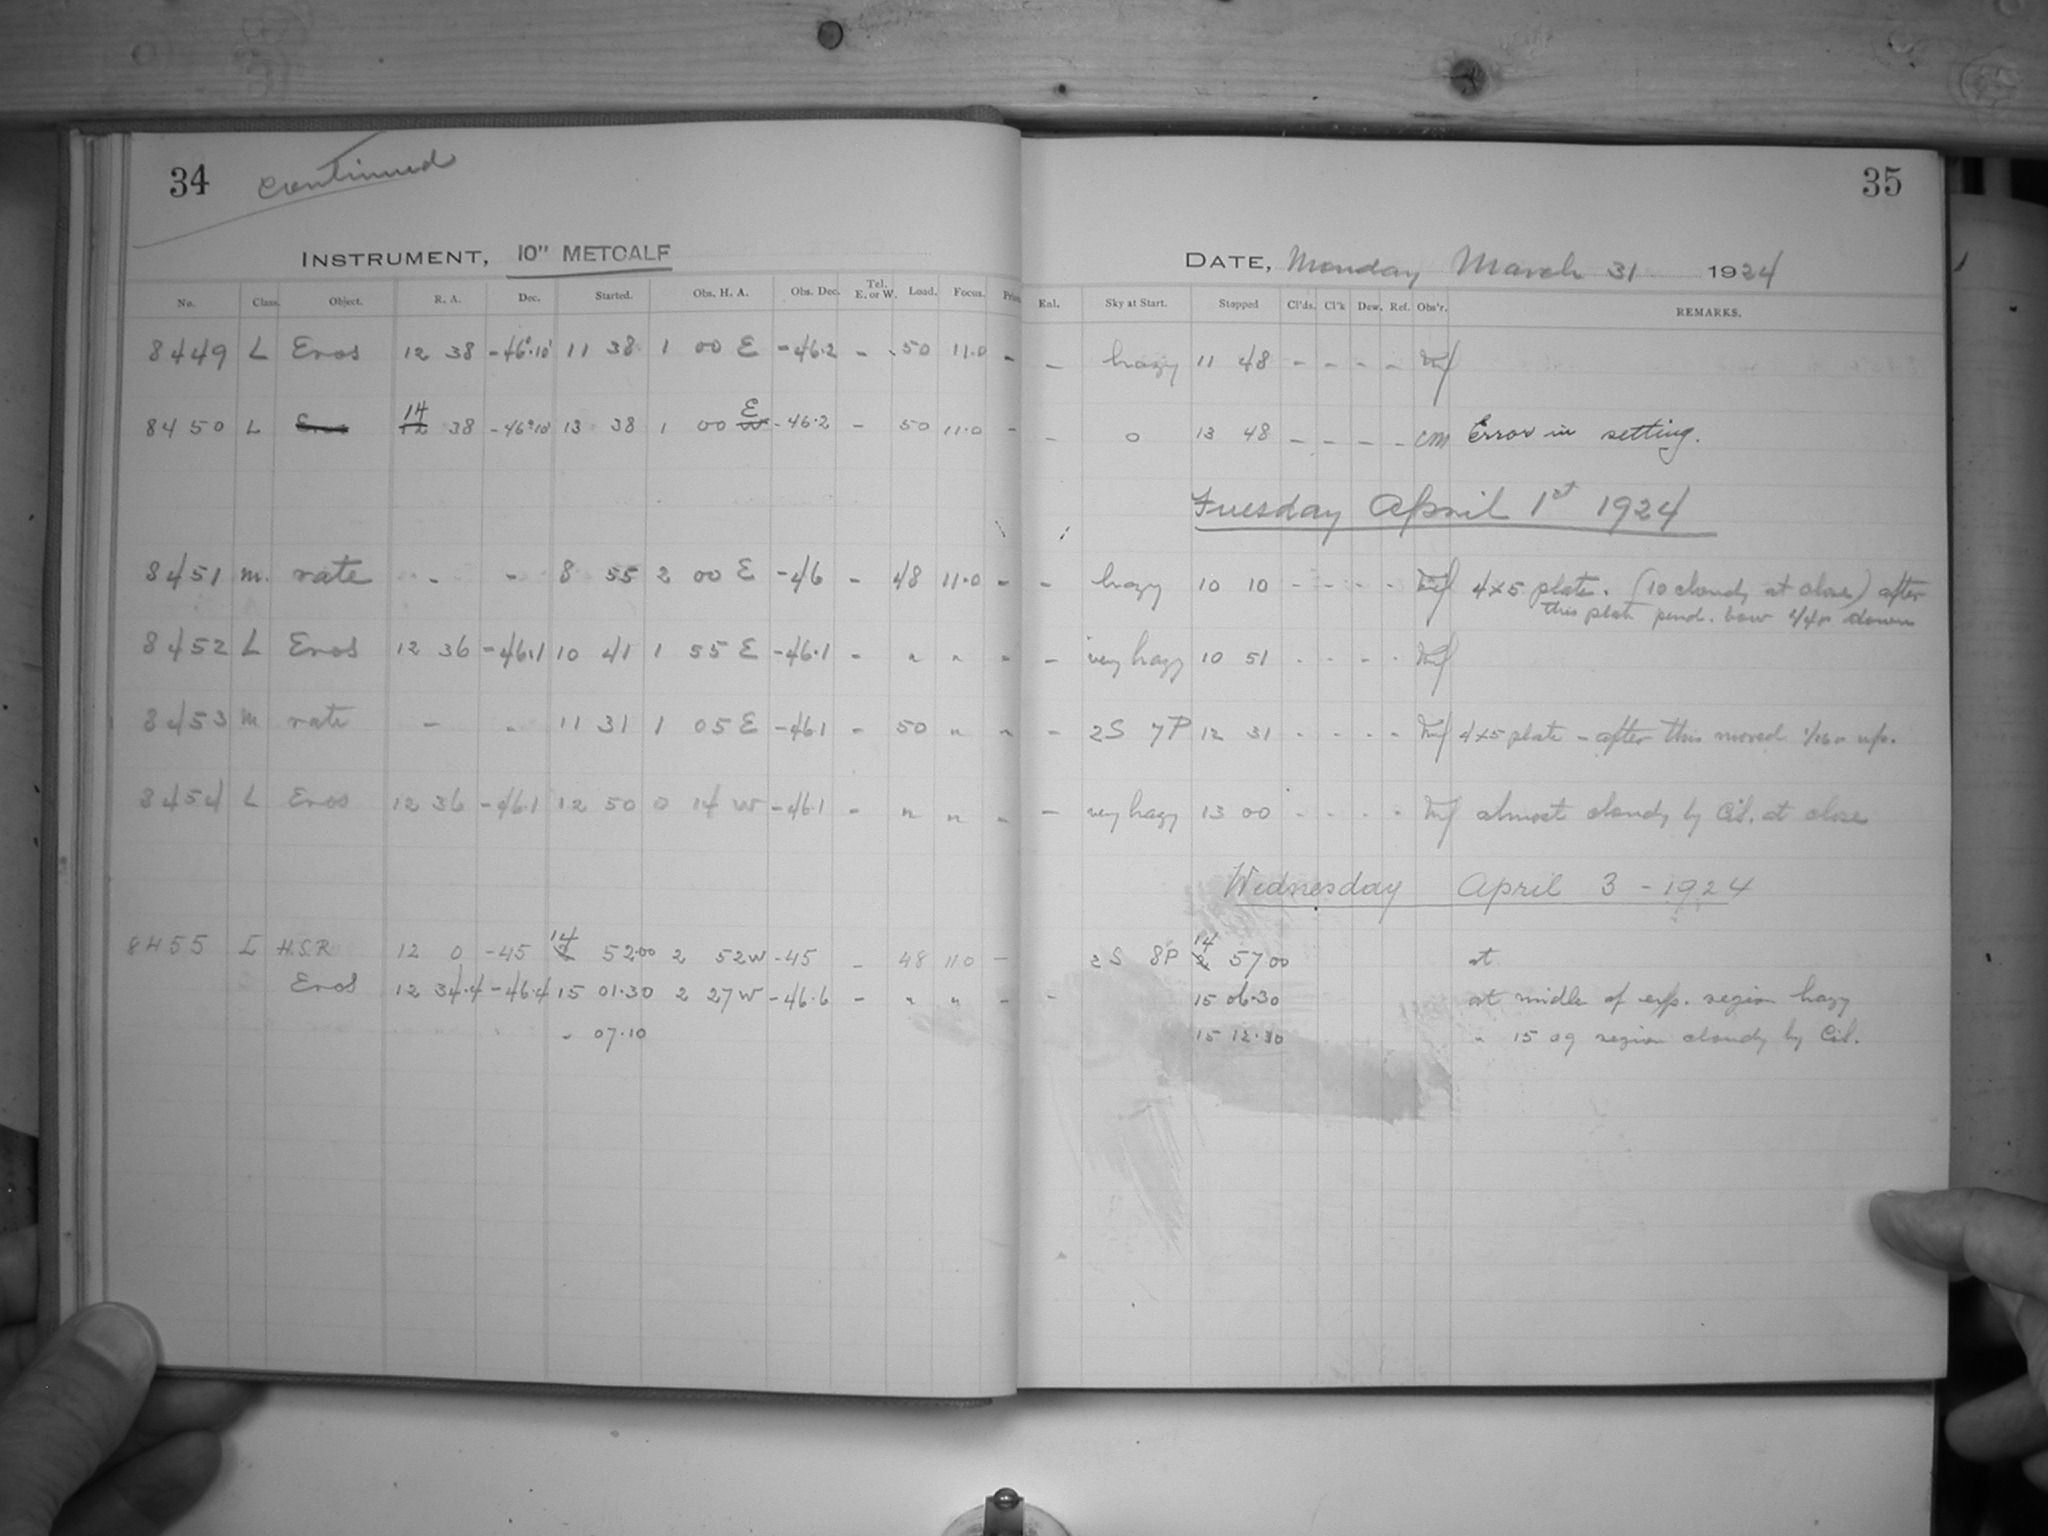 34 continued
INSTRUMENT, 10" METCALF
No. Class. Object. R. A. Dec. Started. Obs. H. A. Obs. Dec. Tel. E. or W. Load. Focus.
8449 L Eros 12 38 -46°.10' 11 38 1 00 E -46.2 - .50 11.0 -
8450 L Eros 12 14 38 -46°10' 13 38 1 00 W E -46.2 - 50 11.0 -
8451 m. rate - - 8 55 2 00 E -46 - 48 11.0 -
8452 L Eros 12 36 -46.1 10 41 1 55 E -46.1 - " " -
8453 m rate - - 11 31 1 05 E -46.1 - 50 " "
8454 L Eros 12 36 -46.1 12 50 0 14 W -46.1 - " " -
8455 L H.S.R 12 0 -45 14 52.00 2 52 W -45 - 48 11 0 -
Eros 12 34.4 -46.4 15 01.30 2 27 W -46.6 - " " -
" 07.10
35
DATE, Monday March 31 1924
Enl. Sky at Start. Stopped Cl'ds. Cl'k Dew. Ref. Obs'r. REMARKS.
- hazy 11 48 - - - -
- 0 13 48 - - - - cm Error in setting.
Tuesday April 1st 1924
- hazy 10 10 - - - - 4x5 plate. (10 cloudy at close) after
this plate pend. bow down
- very hazy 10 51 - - - -
- 2S 7P 12 31 - - - - 4x5 plate - after this moved up.
- very hazy 13 00 - - - - almost cloudy by Cir. at close
Wednesday April 3 - 1924
2S 8P 14 57.00 at
- 15 06.30 at middle of exp. region hazy
15 12.30 " 15 09 region cloudy by Cir.